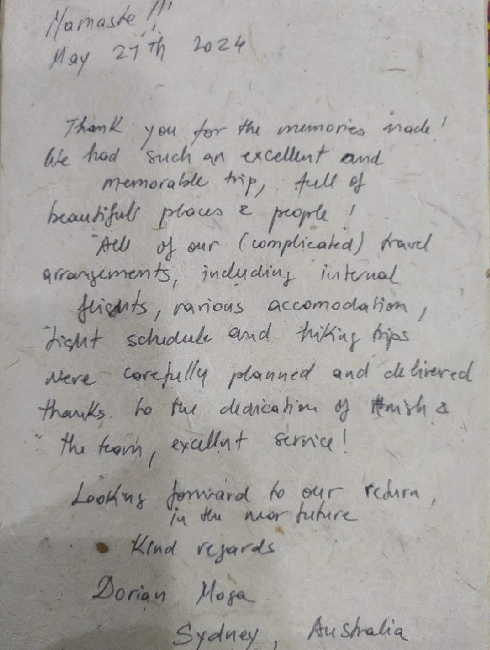 Namaste !!!
May 27th 2024
Thank you for the memories made!
We had such an excellent and
memorable trip, full of
beautifull places & people!
All of our (complicated) travel
arrangements, including internal
flights, various accomodation,
tight schedule and hiking trips
were carefully planned and delivered
thanks to the dedication of &
the team, excellent service!
Looking forward to our return,
in the near future
Kind regards
Dorian Moga
Sydney, Australia